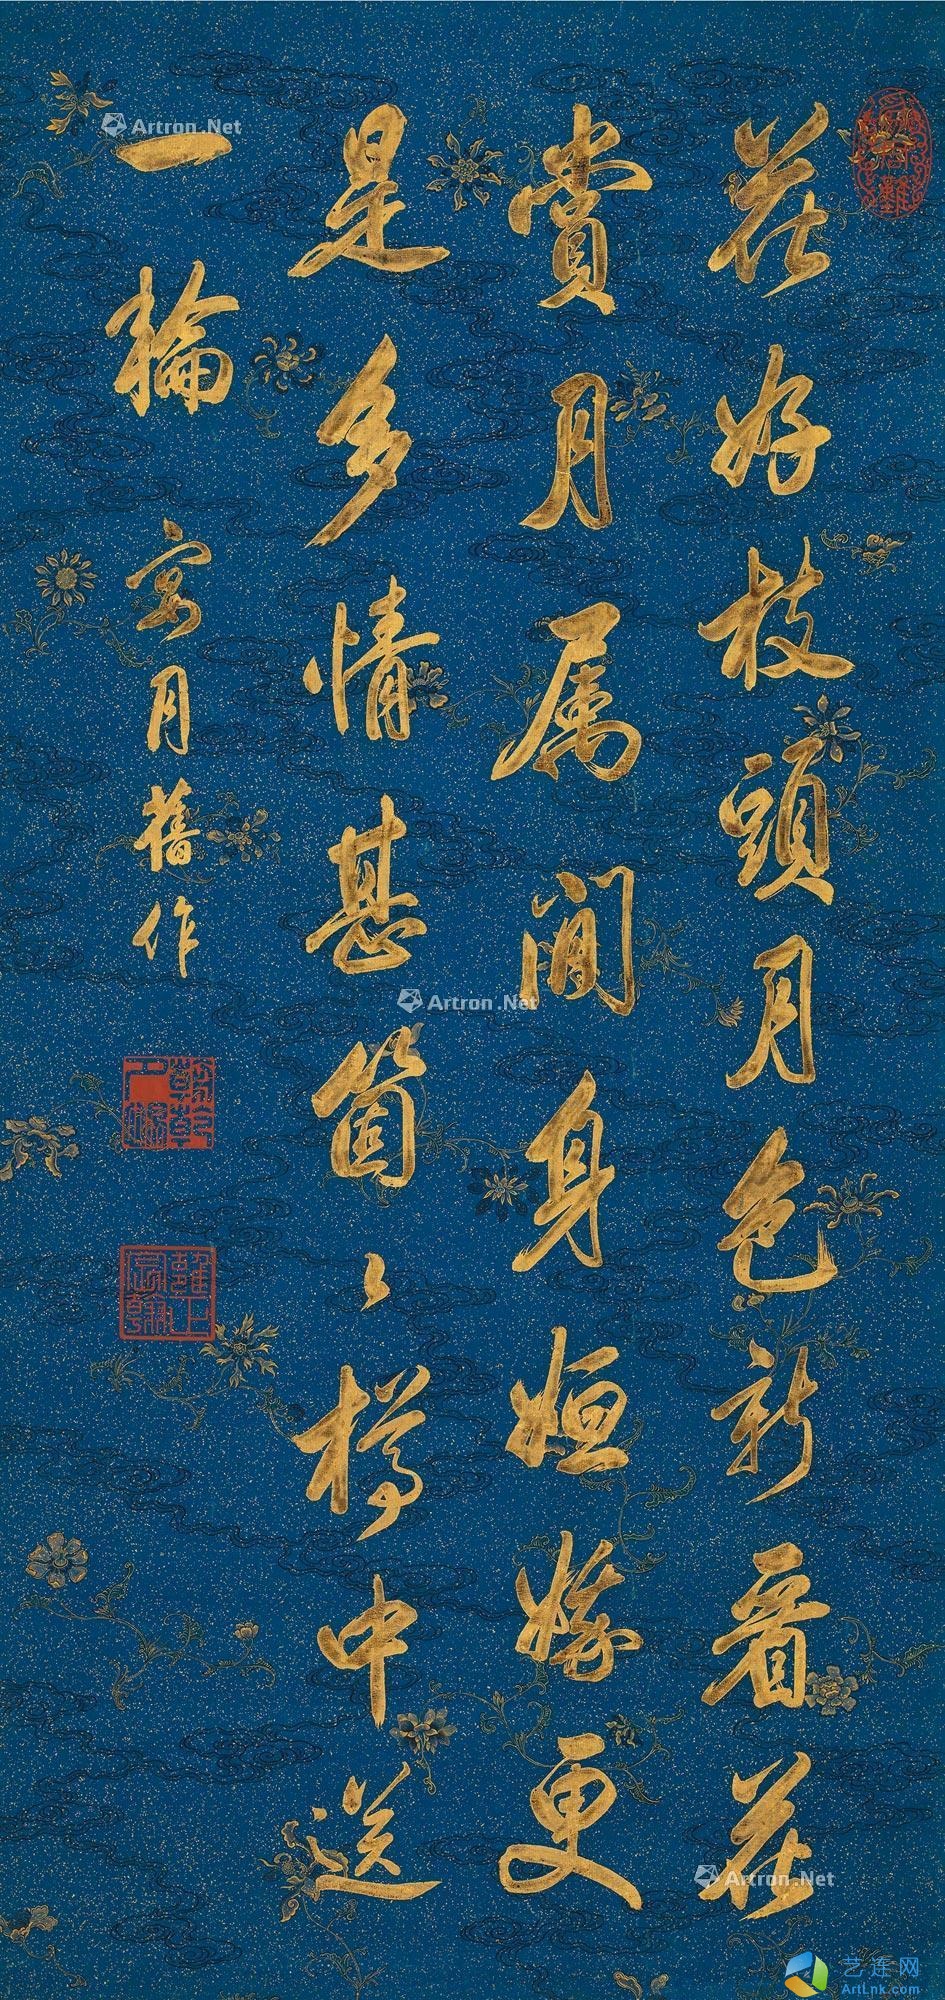 花好枝頭月色新看花
賞月属閒身姮娥更
是多情甚箇〻樽中送
一輪
宾月舊作
Artron.Net
Artron.Net
Artron.Net
艺连网
ArtLnk.com